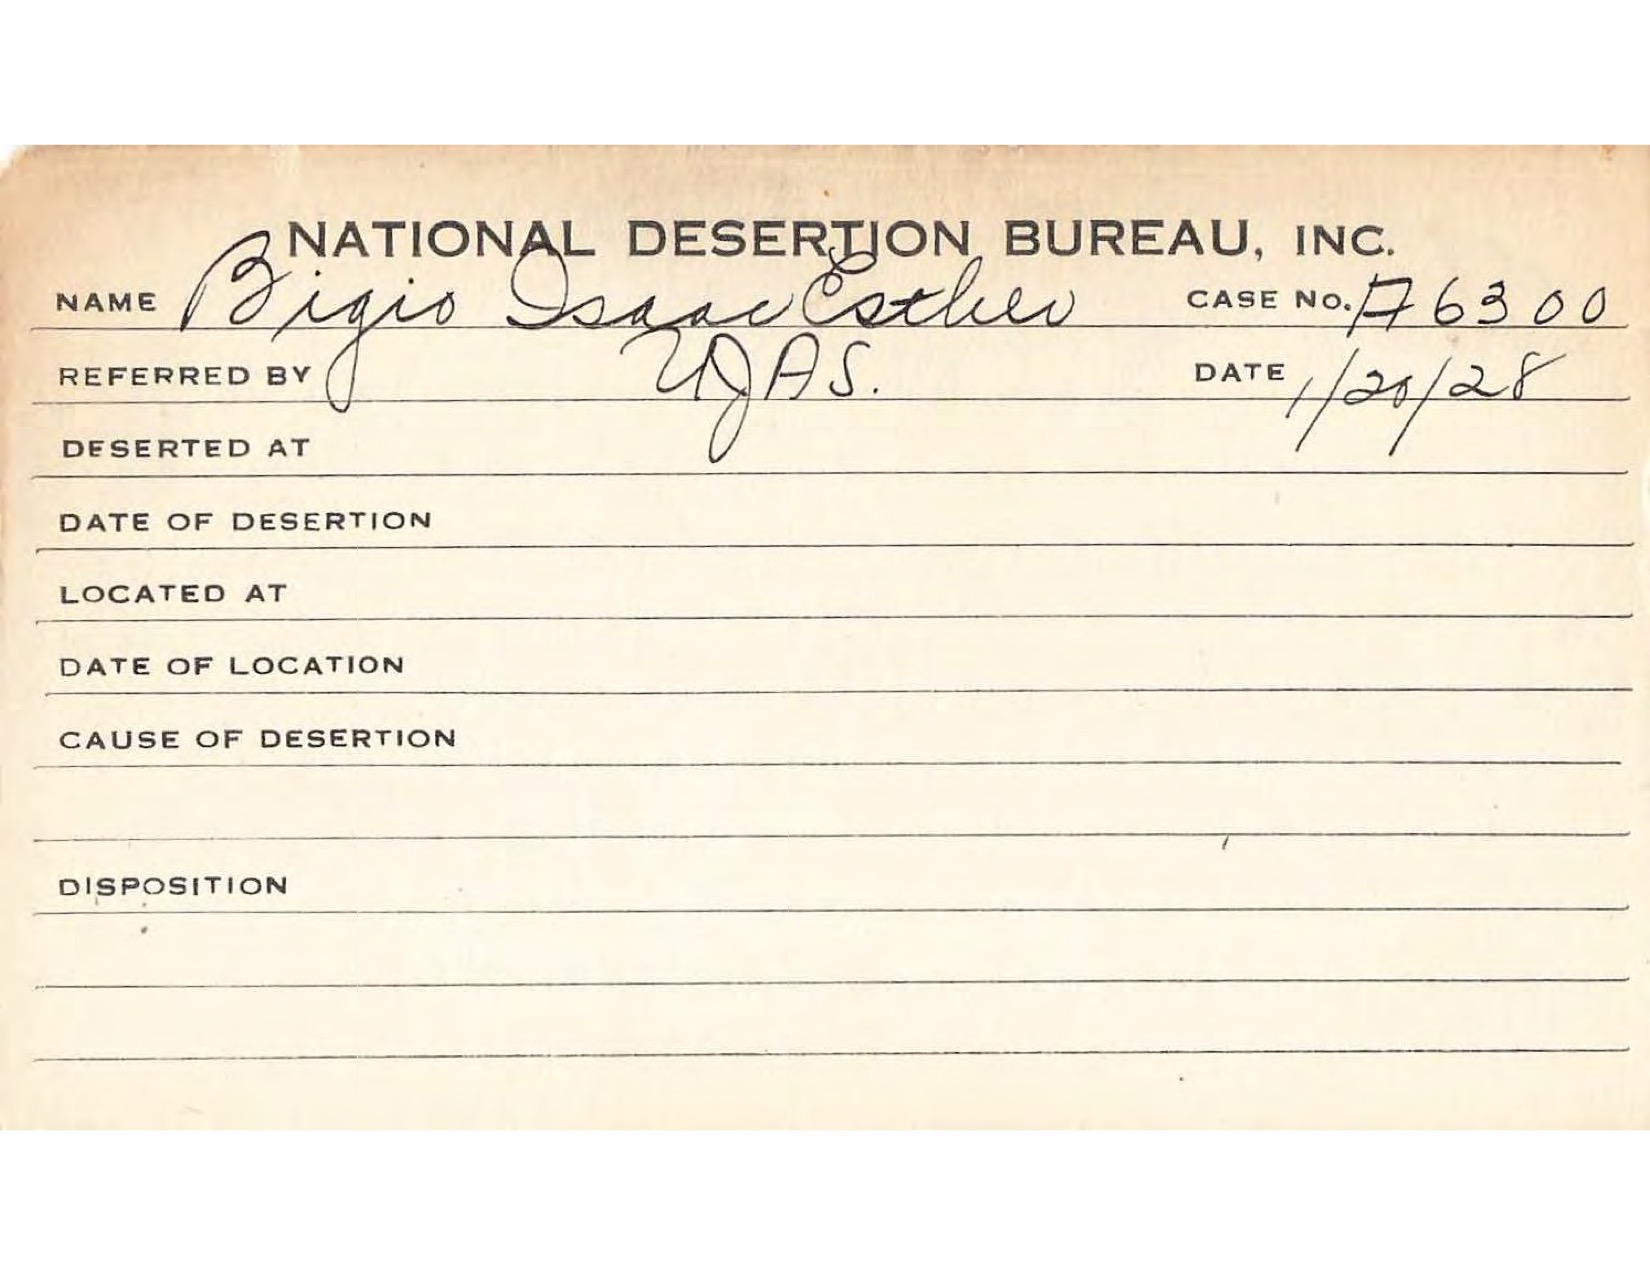 NATIONAL DESERTION BUREAU, INC.
NAME Bigio Isaac Esther CASE NO. A6300
REFERRED BY UJAS. DATE 1/20/28
DESERTED AT
DATE OF DESERTION
LOCATED AT
DATE OF LOCATION
CAUSE OF DESERTION
DISPOSITION